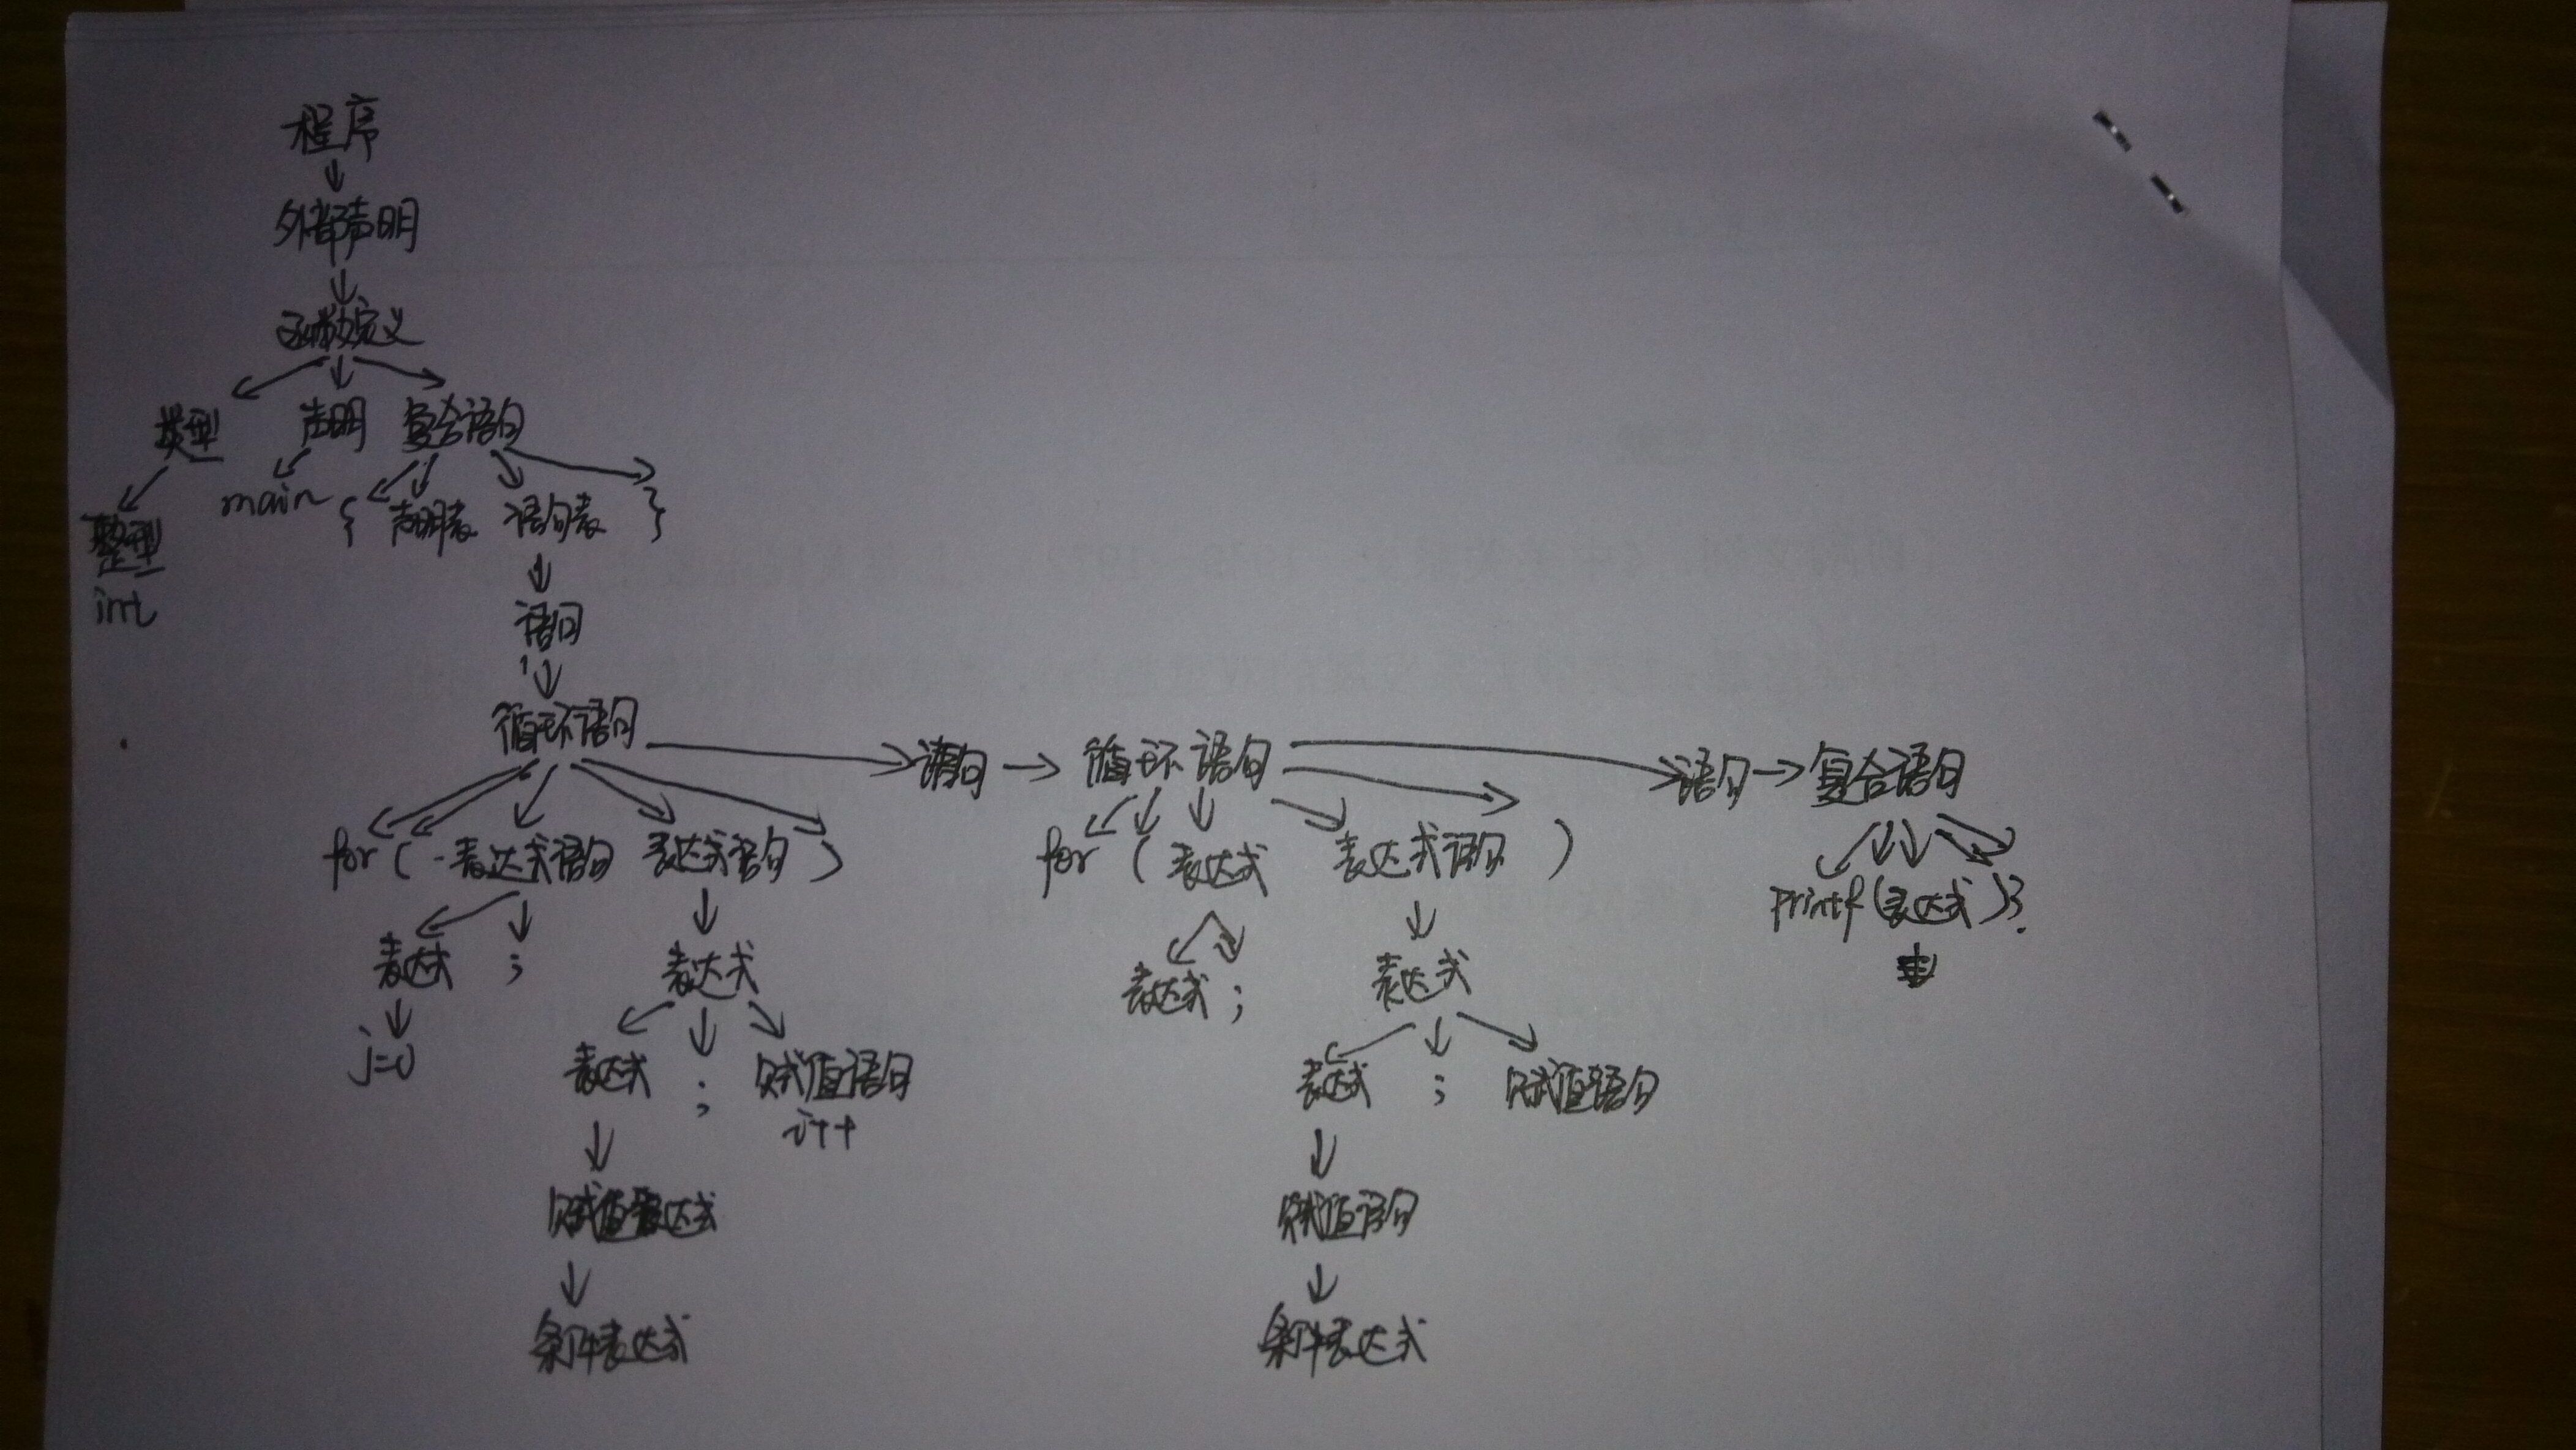 程序
外部声明
函数定义
类型 声明 复合语句
main { 声明表 语句表 }
整型
int
语句
循环语句 语句 循环语句 语句 复合语句
for ( 表达式语句 表达式语句 ) for ( 表达式 表达式语句 )
printf (表达式)
表达式 ; 表达式 表达式 ; 表达式
j=0 表达式 ; 赋值语句 表达式 ; 赋值语句
i++
赋值表达式 赋值语句
条件表达式 条件表达式